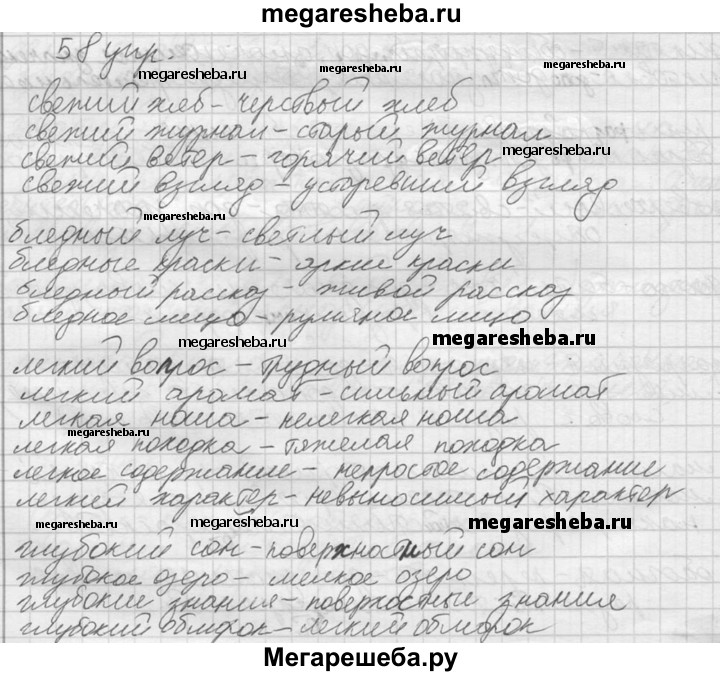 megaresheba.ru
58 упр.
megaresheba.ru
megaresheba.ru
свежий хлеб - черствый хлеб
свежий журнал - старый журнал
свежий ветер - горячий ветер
megaresheba.ru
свежий взгляд - устаревший взгляд
megaresheba.ru
бледный луч - светлый луч
бледные краски - яркие краски
бледный рассказ - живой рассказ
бледное лицо - румяное лицо
megaresheba.ru
легкий вопрос - трудный вопрос
легкий аромат - сильный аромат
легкая ноша - нелегкая ноша
megaresheba.ru
легкая походка - тяжелая походка
легкое содержание - непростое содержание
легкий характер - невыносимый характер
megaresheba.ru
megaresheba.ru
megaresheba.ru
глубокий сон - поверхностный сон
глубокое озеро - мелкое озеро
глубокие знания - поверхостные знания
глубокий обморок - легкий обморок
Мегарешеба.ру